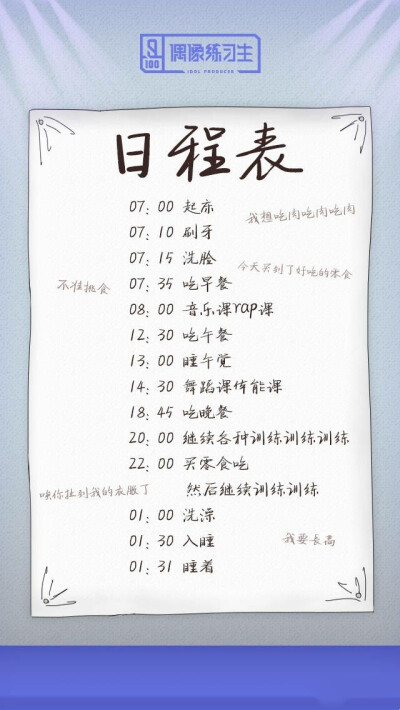 偶像练习生
IDOL PRODUCER
100
日程表
07:00 起床
我想吃肉吃肉吃肉
07:10 刷牙
07:15 洗脸
今天买到了好吃的零食
不准挑食
07:35 吃早餐
08:00 音乐课rap课
12:30 吃午餐
13:00 睡午觉
14:30 舞蹈课体能课
18:45 吃晚餐
20:00 继续各种训练训练训练
22:00 买零食吃
咦你扯到我的衣服了
然后继续训练训练
01:00 洗漂
01:30 入睡
我要长高
01:31 睡着